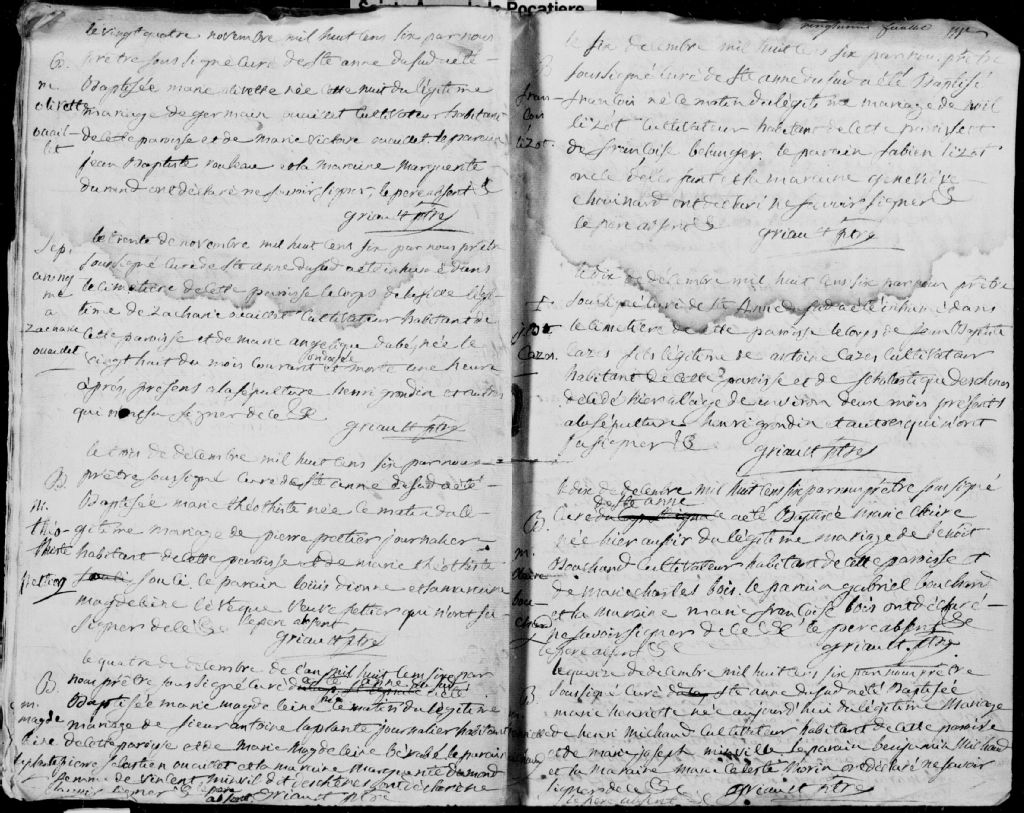 le vingt quatre novembre mil huit cens six par nous
B. prêtre soussigné curé de Ste anne du sud a été
m. Baptisée marie olivette née cette nuit du légitime
olivette mariage de germain ouaillet cultivateur habitant
ouail- de cette paroisse et de marie victoire ouaillet. le parain
let jean Baptiste rouleau et la maraine marguerite
Dumond ont déclaré ne savoir signer, le pere absent
griault ptre
le trente de novembre mil huit cens six par nous prêtre
Sep. soussigné curé de Ste anne du sud a été inhumé dans
le cimetiere de cette paroisse le corps de la fille légi-
time de Zacharie ouaillet cultivateur habitant de
Zacharie cette paroisse et de marie angelique dubé, née le
ouaillet vingt huit du mois courant et morte une heure
ondoyée
après, présens a la sépulture henri grondin et autres
qui n'ont su signer de ce
griault ptre
le trois de décembre mil huit cens six par nous
B. prêtre soussigné curé de Ste anne du sud a été
m. Baptisée marie théothiste née ce matin du lé-
théo- gitime mariage de pierre pelletier journalier
thiste habitant de cette paroisse et de marie théothiste
souli. le parain louis dionne et la maraine
magdeleine lévêque veuve peltier qui n'ont su
signer de ce le pere absent
griault ptre
le quatre de décembre de l'an mil huit cens six par
B. nous prêtre soussigné curé de Ste anne du sud a été
m. Baptisée marie magdeleine née ce matin du légitime
magde mariage de sieur antoine laplante journalier habitant
leine de cette paroisse et de marie magdeleine bérubé. le parain
laplante pierre sebastien ouaillet et la maraine marguerite Dumond
femme de vincent miville dit deschênes ont déclaré ne
savoir signer le pere absent griault ptre
vingtunieme feuillet
le six décembre mil huit cens six par nous prêtre
B soussigné curé de Ste anne du sud a été Baptisé
fran- françois né ce matin du légitime mariage de noil
cois lizot cultivateur habitant de cette paroisse et
lizot. de françoise belanger. le parain fabien lizot
oncle de l'enfant et la maraine geneviève
chouinard ont déclaré ne savoir signer
le pere absent griault ptre
le dix de décembre mil huit cens six par nous prêtre
soussigné curé de Ste Anne du sud a été inhumé dans
le cimetiere de cette paroisse le corps de Jean Baptiste
Cazes. Cazes fils légitime de antoine Cazes cultivateur
habitant de cette paroisse et de scholastique deschenes
décédé hier a l'age de environ deux mois présents
a la sépulture henri grondin et autres qui n'ont
su signer
griault ptre
le dix de décembre mil huit cens six par nous prêtre soussigné
de Ste anne
B. curé du a été Baptisée marie claire
m. née hier au soir du légitime mariage de benoit
claire Bouchard cultivateur habitant de cette paroisse et
bou- de marie charles bois. le parain gabriel bouchard
chard et la maraine marie françoise bois ont déclaré
ne savoir signer de ce le pere absent
le pere absent griault ptre
le quinze de décembre mil huit cens six par nous prêtre
B. soussigné curé de Ste anne du sud a été Baptisée
m. marie henriette née aujourd'hui du légitime mariage
de henri michaud cultivateur habitant de cette paroisse
et de marie joseph miville le parain benjamin michaud
et la maraine marie celeste morin ont déclaré ne savoir
signer de ce griault ptre
le pere absent